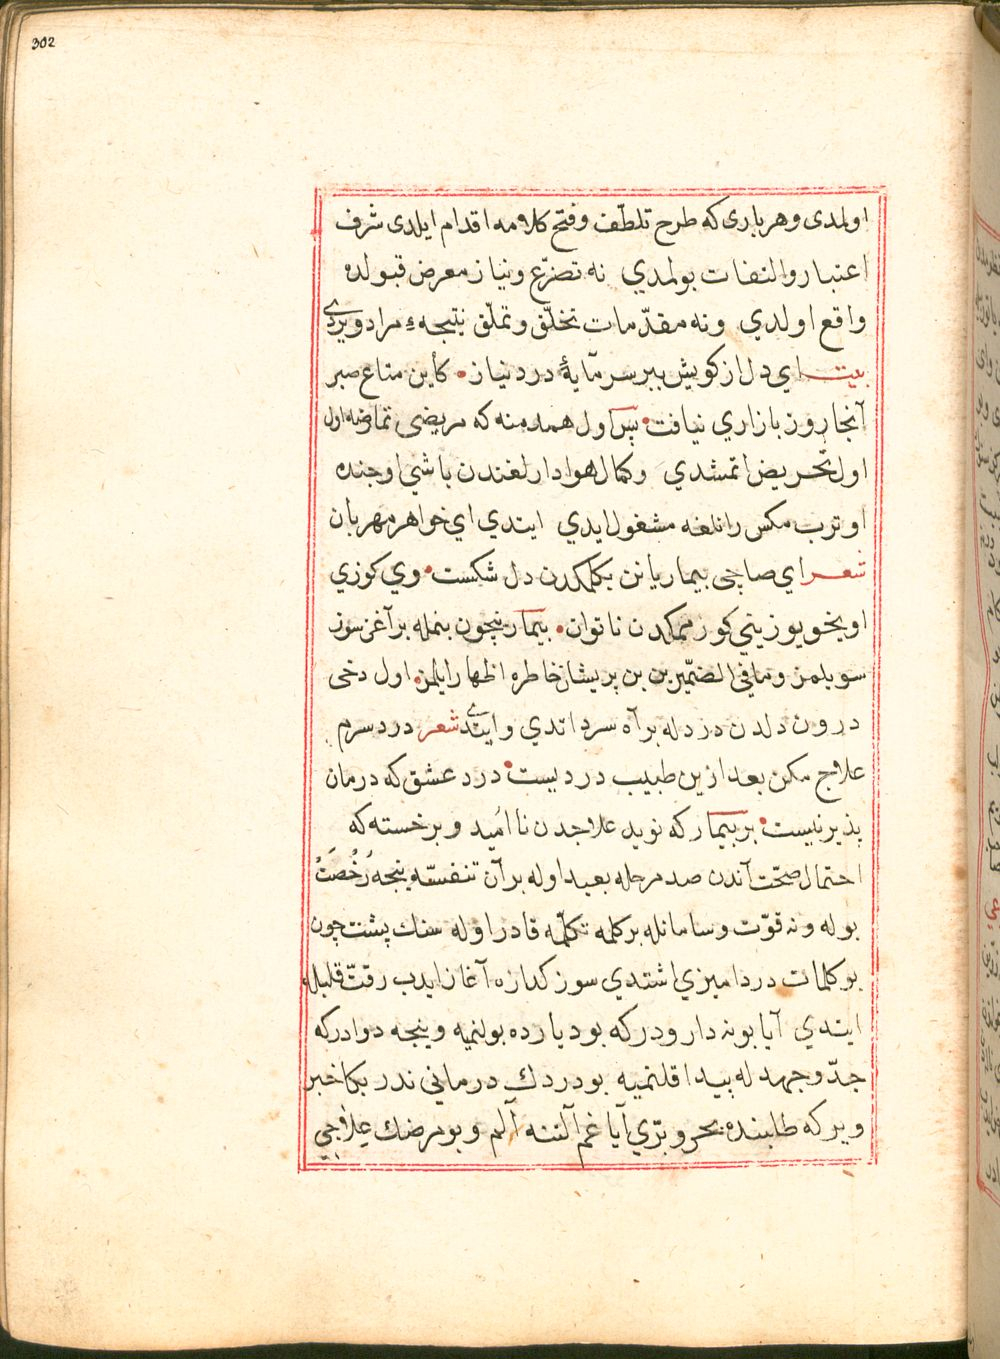 302
اولمدی و هر باری که طرح تلطّف و فتح کلامه اقدام ایلدی شرف
اعتبار و التفات بولمدي نه تضرّع و نیاز معرض قبولده
واقع اولدي و نه مقدّمات تخلّق و تملّق نتیجهء مراد ویردے
بیت اي دل از کویش ببر سرمایهٔ درد نیاز • کاین متاع صبر
آنجا روز بازاري نیافت • پس اول همدمنه که مریضی تمارضه اول
اول تحریض اتمشدي و کمال هوادارلغندن باشي اوجنده
اوترب مکس رانلغه مشغول ایدي ایتدي اي خواهر مهربان
شعر اي صاچی بیمار یانن بکلمکدن دل شکست • وي کوزي
اویخو یوزیني کورممکدن ناتوان • بیمار نیچون بنمله بر آغز سوز
سویلمز و ما في الضّمیرین بن پریشان خاطره اظهار ایلمز • اول دخی
درون دلدن درد له بر آه سرد اتدي و ایتدے شعر درد سرم
علاج مکن بعد ازین طبیب درد یست • درد عشق که درمان
پذیر نیست • بر بیمار که نوید علاجدن ناامید و بر خسته که
احتمال صحّت آندن صد مرحله بعید اوله بر آن تنفسّه نیجه رُخْصَتْ
بوله و نه قوّت و سامانله بر کلمه تکلّمه قادر اوله سنك پشت چون
بو کلمات درد امیزي اشتدي سوز کدازه آغاز ایدب رقتّ قلبله
ایتدي آیا بو نه دارودر که بو دیارده بولنمیه و نیجه دوادر که
جدّ و جهد له پیدا قلنمیه بو دردك درماني ندر بکا خبر
ویر که طلبنده بحر و برّي آیاغم آلتنه آلم و بو مرضك علاجي